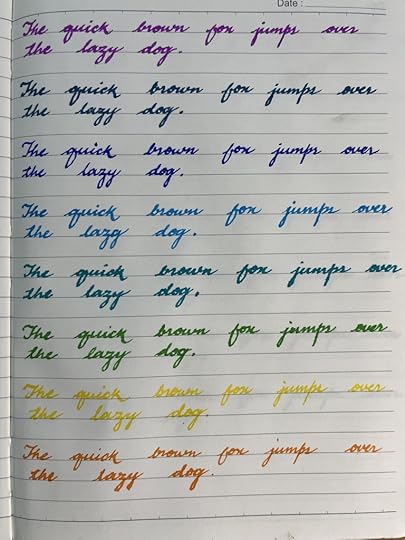 Date :
The quick brown fox jumps over
the lazy dog.
The quick brown fox jumps over
the lazy dog.
The quick brown fox jumps over
the lazy dog.
The quick brown fox jumps over
the lazy dog.
The quick brown fox jumps over
the lazy dog.
The quick brown fox jumps over
the lazy dog.
The quick brown fox jumps over
the lazy dog.
The quick brown fox jumps over
the lazy dog.